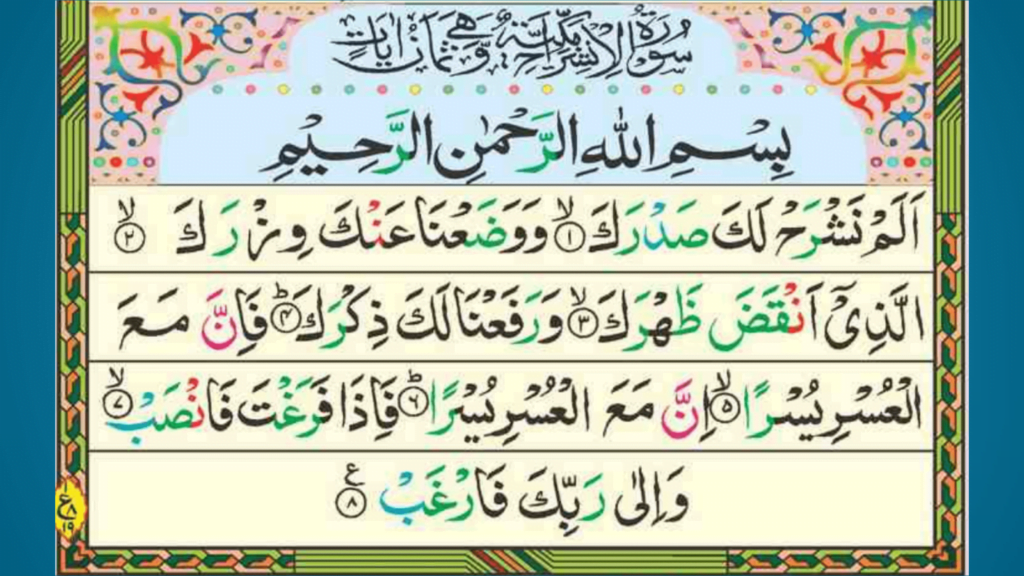 سُوْرَةُ الْاِنْشِرَاحِ مَكِّيَّةٌ وَّهِيَ ثَمَانُ اٰيَاتٍ
بِسْمِ اللّٰهِ الرَّحْمٰنِ الرَّحِيْمِ
اَلَمْ نَشْرَحْ لَكَ صَدْرَكَ ۙ‏﴿۱﴾ وَوَضَعْنَا عَنْكَ وِزْرَكَ ۙ‏﴿۲﴾
الَّذِىْۤ اَنْقَضَ ظَهْرَكَ ۙ‏﴿۳﴾ وَرَفَعْنَا لَكَ ذِكْرَكَ ؕ‏﴿۴﴾ فَاِنَّ مَعَ
الْعُسْرِ يُسْرًا ۙ‏﴿۵﴾ اِنَّ مَعَ الْعُسْرِ يُسْرًا ؕ‏﴿۶﴾ فَاِذَا فَرَغْتَ فَانْصَبْ ۙ‏﴿۷﴾
وَاِلٰى رَبِّكَ فَارْغَبْ ﴿۸﴾ ع
۱
ع ۸
۱۹